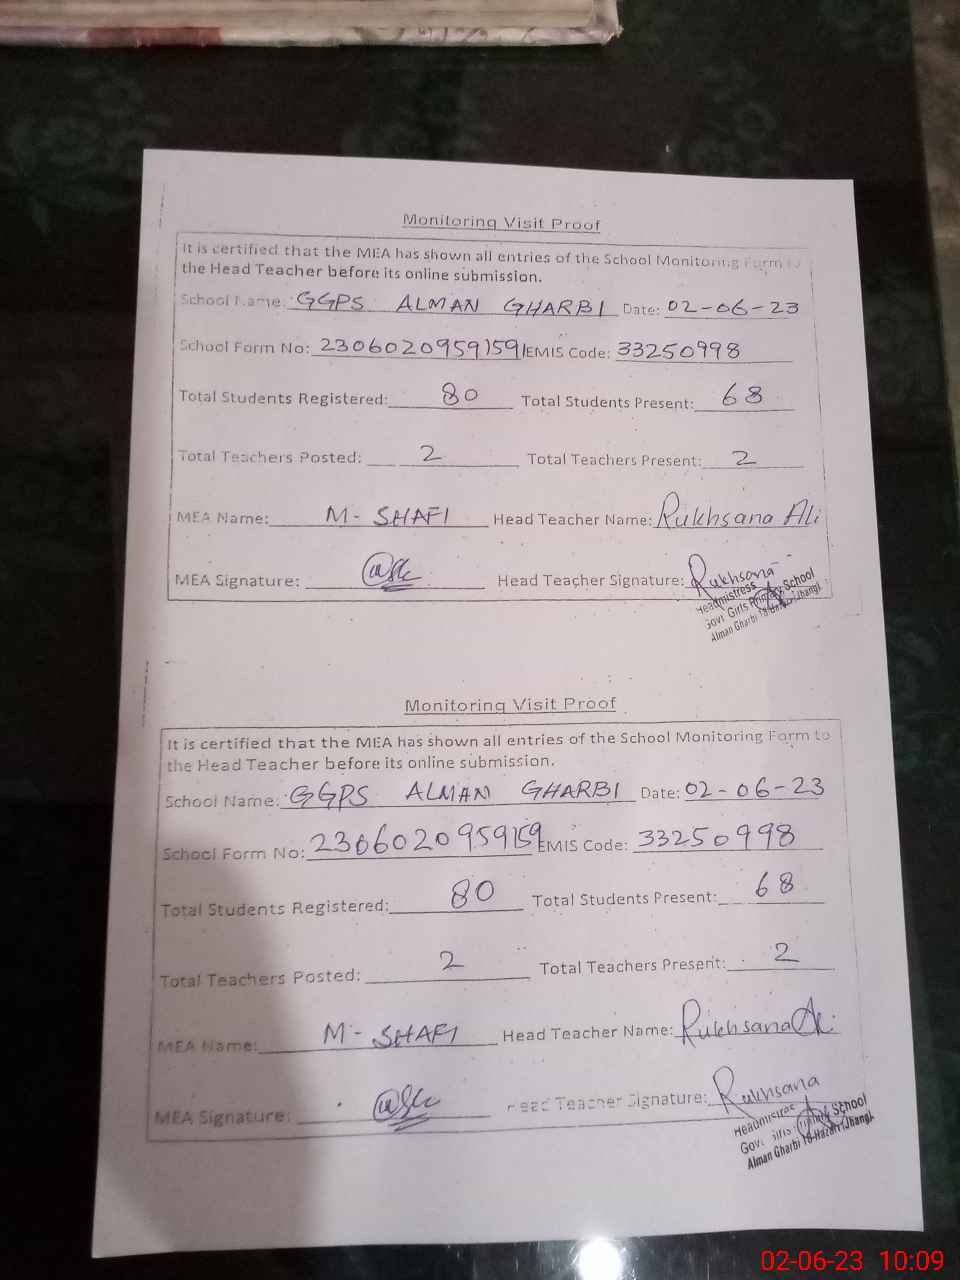 Monitoring Visit Proof
It is certified that the MEA has shown all entries of the School Monitoring Form to
the Head Teacher before its online submission.
School Name: GGPS ALMAN GHARBI Date: 02-06-23
School Form No: 2306020959159 EMIS Code: 33250998
Total Students Registered: 80 Total Students Present: 68
Total Teachers Posted: 2 Total Teachers Present: 2
MEA Name: M- SHAFI Head Teacher Name: Rukhsana Ali
MEA Signature: Head Teacher Signature: Rukhsana
Headmistress
Govt Girls Primary School
Alman Gharbi 18-Hazari (Jhang).
Monitoring Visit Proof
It is certified that the MEA has shown all entries of the School Monitoring Form to
the Head Teacher before its online submission.
School Name: GGPS ALMAN GHARBI Date: 02-06-23
School Form No: 2306020959159 EMIS Code: 33250998
Total Students Registered: 80 Total Students Present: 68
Total Teachers Posted: 2 Total Teachers Present: 2
MEA Name: M- SHAFI Head Teacher Name: Rukhsana Ali
MEA Signature: Head Teacher Signature: Rukhsana
Headmistress
Govt Girls Primary School
Alman Gharbi 18-Hazari (Jhang).
02-06-23 10:09